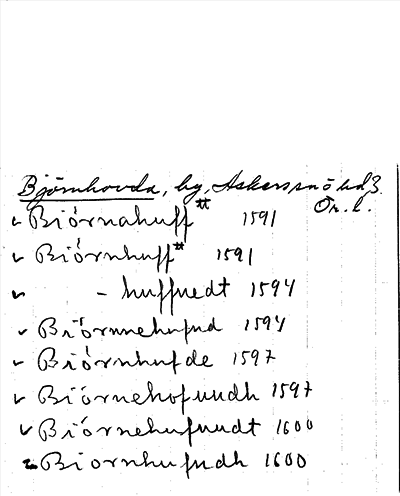 Björnhovda, by, Askersunds lid 3.
Ör. l.
Biórnahuff # 1591
Biórnhuff # 1591
- huffuedt 1594
Biórnnehufud 1594
Biórnhufde 1597
Biórnehofuudh 1597
Biórnehufuudt 1600
Biornhufudh 1600